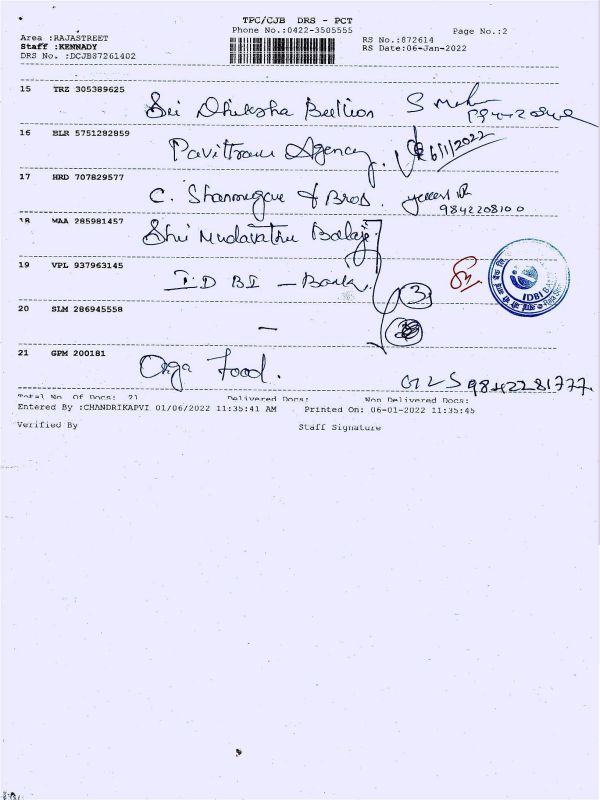 TPC/CJB DRS - PCT
Phone No.:0422-3505555 Page No.:2
Area :RAJASTREET RS No.:872614
Staff :KENNADY RS Date:06-Jan-2022
DRS No. :DCJB87261402
15 TRZ 305389625
Sri Dhiksha Bullion
16 BLR 5751282859
Pavittram Agency. 6/1/2022
17 HRD 707829577
C. Shanmugam & Bros.
9842208100
18 MAA 285981457
Shri Balaji
19 VPL 937963145
IDBI - Bank. 3
IDBI
20 SLM 286945558
-
21 GPM 200181
Orga Food.
9842281777.
Total No. Of Docs: 21 Delivered Docs: Non Delivered Docs:
Entered By :CHANDRIKAPVI 01/06/2022 11:35:41 AM Printed On: 06-01-2022 11:35:45
Verified By Staff Signature